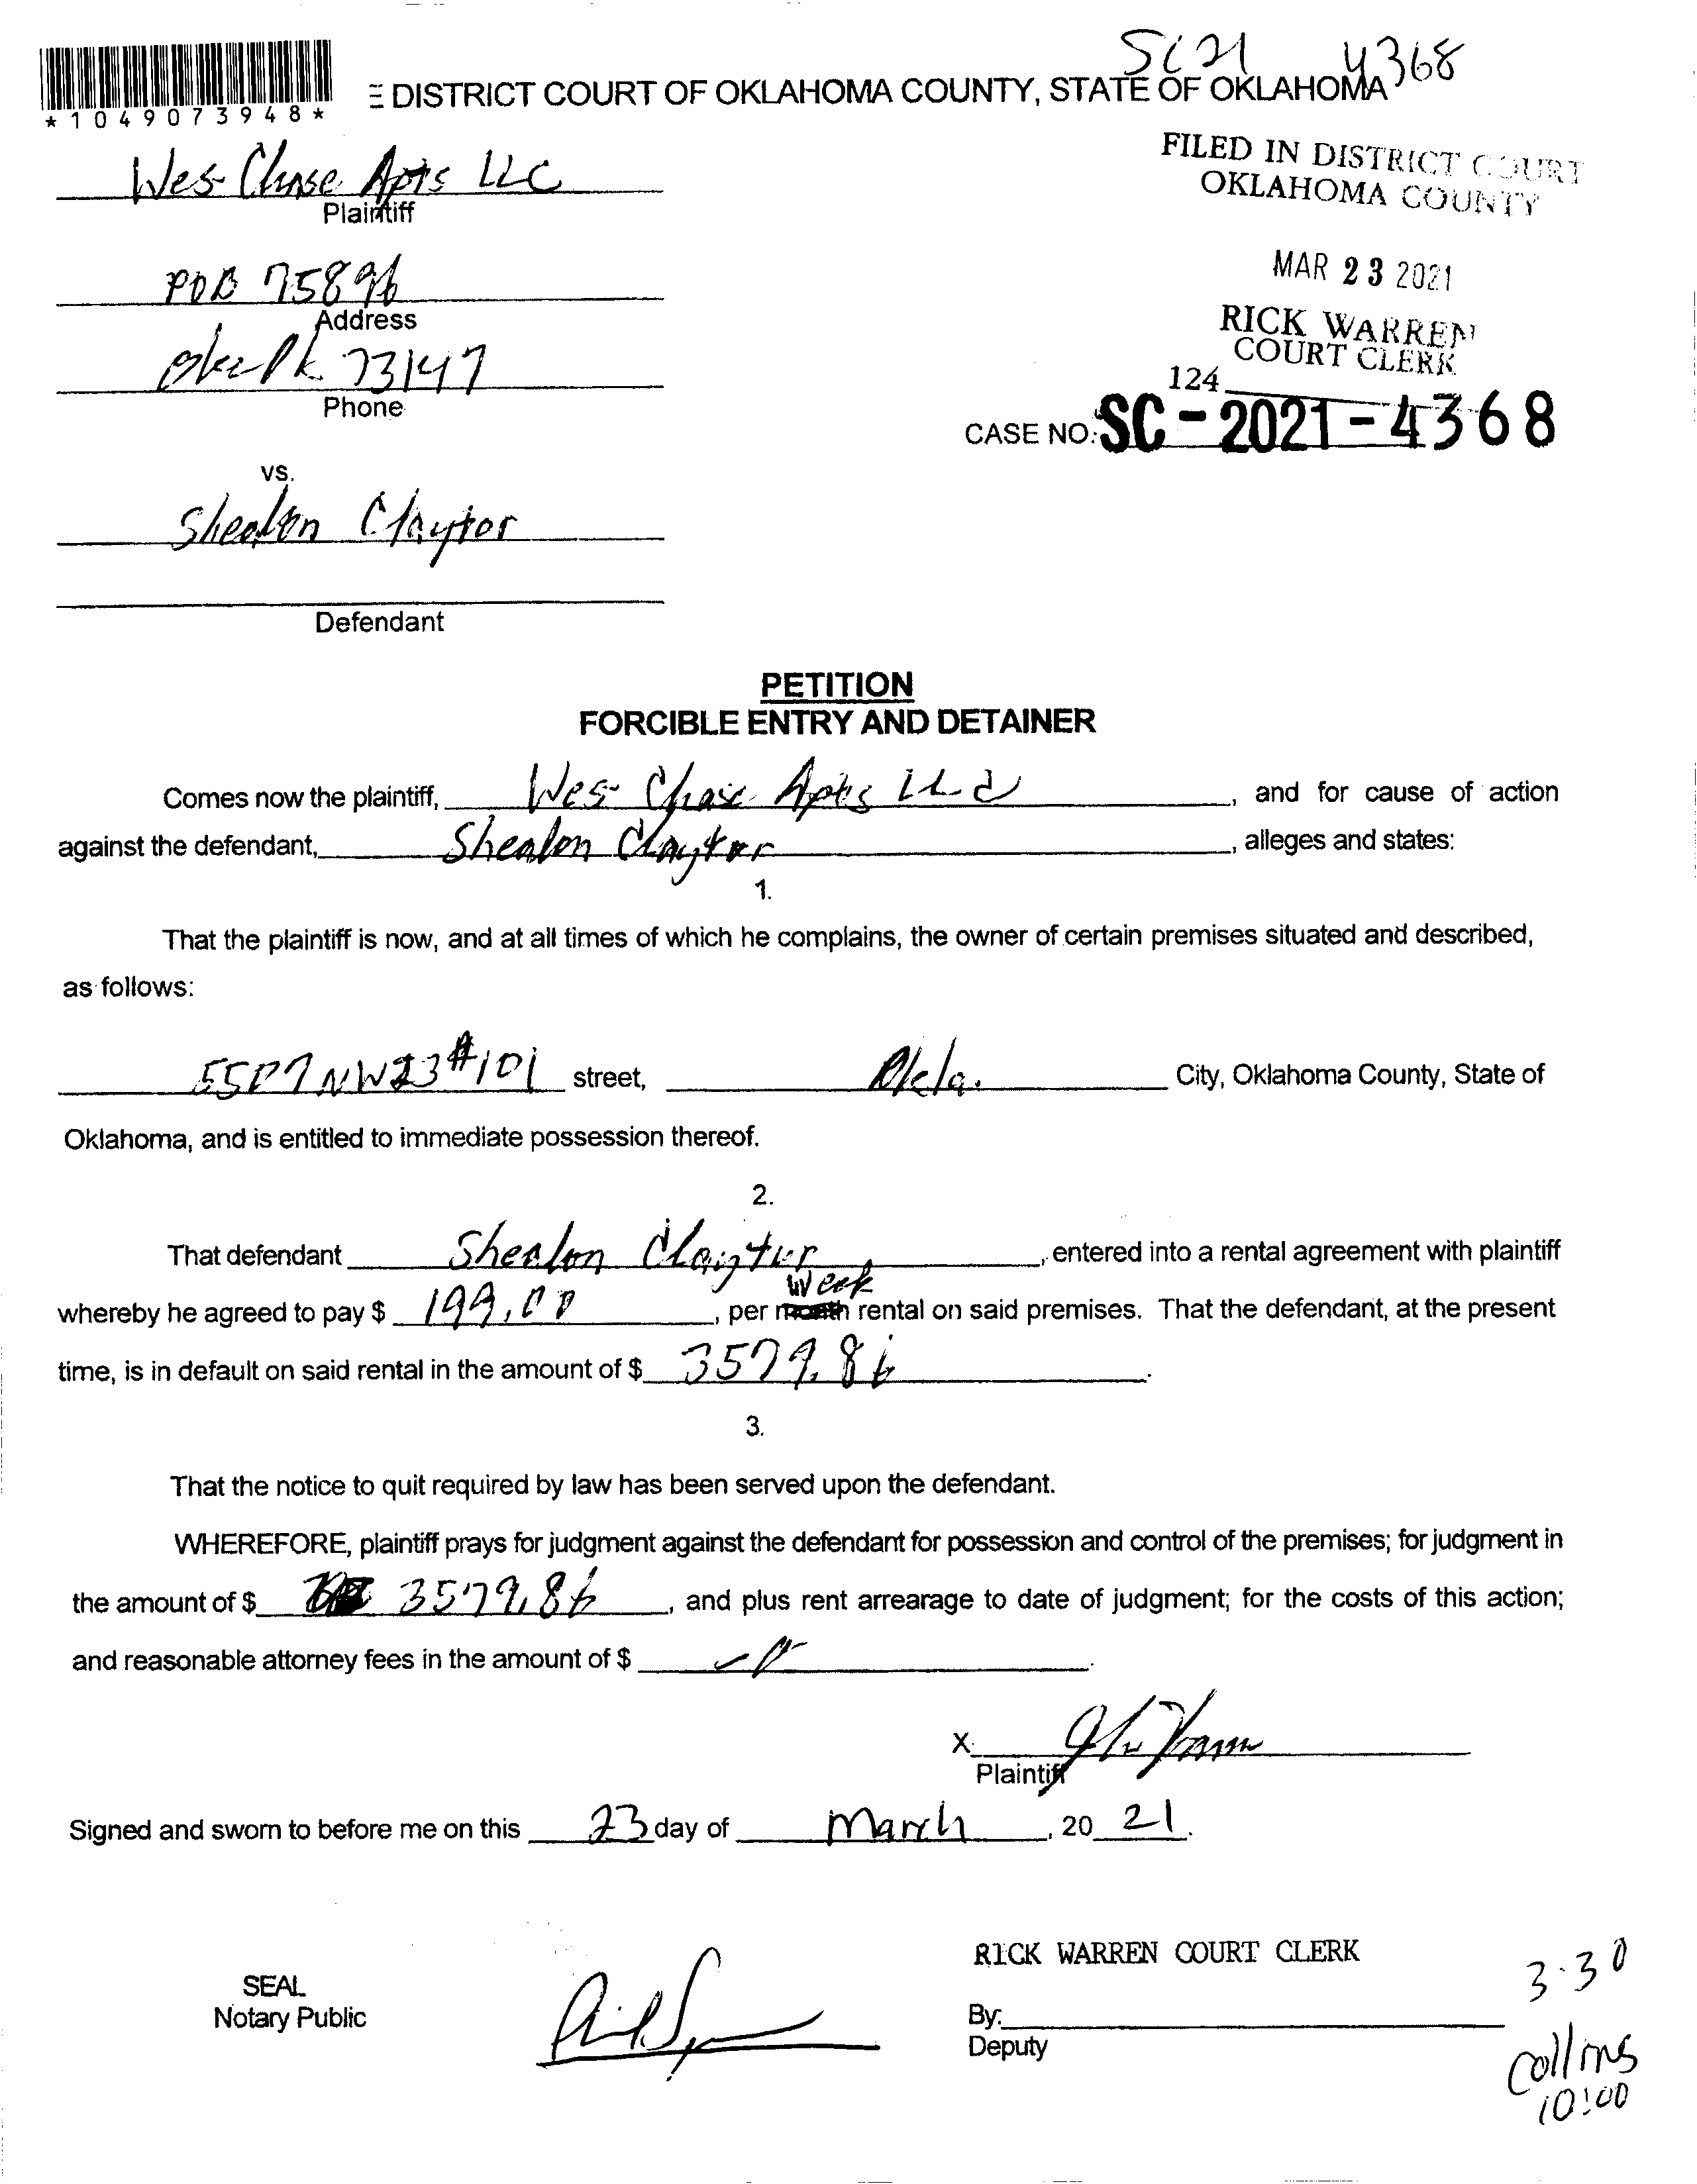 SC21 4368
*1049073948*
E DISTRICT COURT OF OKLAHOMA COUNTY, STATE OF OKLAHOMA
FILED IN DISTRICT COURT
OKLAHOMA COUNTY
Wes Chase Apts LLC
Plaintiff
MAR 23 2021
POB 75896
Address
RICK WARREN
COURT CLERK
73147
Phone
124
CASE NO. SC-2021-4368
VS.
Shealon Claytor
Defendant
PETITION
FORCIBLE ENTRY AND DETAINER
Comes now the plaintiff, Wes Chase Apts LLC, and for cause of action
against the defendant, Shealon Claytor, alleges and states:
1.
That the plaintiff is now, and at all times of which he complains, the owner of certain premises situated and described,
as follows:
5507 NW 23 #101 street, Okla. City, Oklahoma County, State of
Oklahoma, and is entitled to immediate possession thereof.
2.
That defendant Shealon Claytor, entered into a rental agreement with plaintiff
Week
whereby he agreed to pay $ 199.00, per month rental on said premises. That the defendant, at the present
time, is in default on said rental in the amount of $ 3579.86.
3.
That the notice to quit required by law has been served upon the defendant.
WHEREFORE, plaintiff prays for judgment against the defendant for possession and control of the premises; for judgment in
the amount of $ 3579.86, and plus rent arrearage to date of judgment; for the costs of this action;
and reasonable attorney fees in the amount of $ -0-.
X
Plaintiff
Signed and sworn to before me on this 23 day of March, 20 21.
RICK WARREN COURT CLERK
3-30
SEAL
Notary Public
By:
Deputy
Collins
10:00